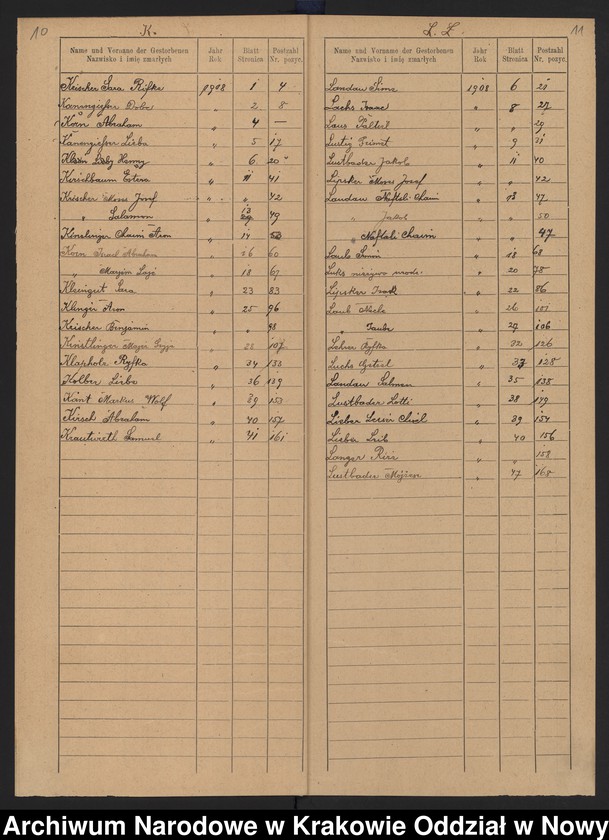 10
K.
Name und Vorname der Gestorbenen
Nazwisko i imię zmarłych
Jahr
Rok
Blatt
Stronica
Postzahl
Nr. pozyc.
Keischer Sara Rifke 1908 1 4
Kannengiesser Dobe " 2 8
Korn Abraham " 4 —
Kanengiesser Lieba " 5 17
Klein Hanny " 6 20
Kirschbaum Estera " 11 41
Krischer Moses Josef " " 42
" Salamon " 13 49
Künstlinger Chaim Aron " 14 53
Korn Israel Abraham " 16 60
" Marjem " 18 67
Kleingut Sara " 23 83
Klinger Aron " 25 96
Krischer Benjamin " " 98
Künstlinger " 28 107
Klapholz Ryfka " 34 133
Kolber Lieba " 36 139
Kant Markus Wolf " 39 153
Kirsch Abraham " 40 157
Krautwirth Samuel " 41 161
11
L. Ł.
Name und Vorname der Gestorbenen
Nazwisko i imię zmarłych
Jahr
Rok
Blatt
Stronica
Postzahl
Nr. pozyc.
Landau Sime 1908 6 21
Lachs Isaac " 8 27
Laus " " 29
Lustig " 9 31
Lustbader Jakob " 11 40
Lipsker Moses Josef " " 42
Landau Naftali Chaim " 13 47
" " " 50
" Naftali Chaim " 47
Laub Simon " 18 68
Luks nieżywo urodz. " 20 78
Lipsker Isak " 22 86
Laub " 26 101
" Taube " 27 106
Lehrer Ryfka " 32 126
Luchs " 33 128
Landau Salmen " 35 138
Lustbader Lotti " 38 149
Lieber Leser " 39 154
Lieber Leib " 40 156
Langer " " 158
Lustbader Mojżesz " 47 168
Archiwum Narodowe w Krakowie Oddział w Nowy